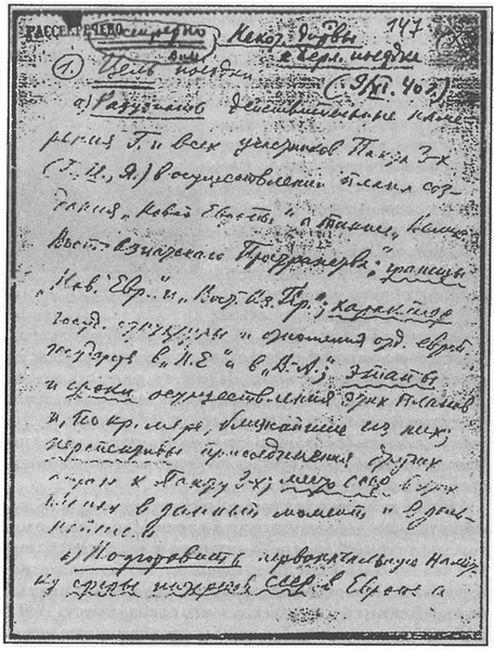 РАССЕКРЕЧЕНО
147
Некот. дир-вы
к Берл. поездке
(9/XI. 40 г.)
1. Цель поездки
а) Разузнать действительные наме-
рения Г. и всех участников Пакта 3-х
(Г., И., Я.) в осуществлении плана соз-
дания „Новой Европы“, а также „Велик.
Вост.-Азиатского Пространства“; границы
„Нов. Евр.“ и „Вост.-Аз. Пр.“; характер
госуд. структуры и отношения отд. европ.
государств в „Н.Е.“ и в „В.-А.“; этапы
и сроки осуществления этих планов
и, по кр. мере, ближайшие из них;
перспективы присоединения других
стран к Пакту 3-х; место СССР в этих
планах в данный момент и в даль-
нейшем.
б) Подготовить первоначальную намет-
ку сферы интересов СССР в Европе, а